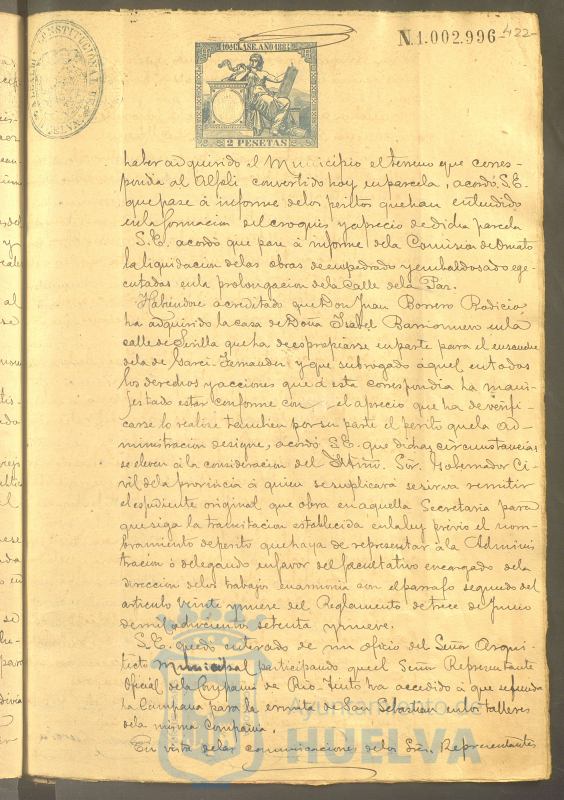 N.1.002.996
422
10ª CLASE. AÑO 1884
2 PESETAS
haber adquirido el Municipio el terreno que corres-
pondia al Alfoli convertido hoy en parcela, acordó S.E.
que pase á informe de los peritos que han entendido
en la formacion del croquis y aprecio de dicha parcela
S.E. acordó que pase á informe de la Comision de Ornato
la liquidacion de las obras de empedrado y embaldosado eje-
cutadas en la prolongacion de la Calle de la Paz.
Habiendose acreditado que Don Juan Borrero Radicio
ha adquirido la casa de Doña Isabel Barrionuevo en la
calle de Sevilla que ha de espropiarse en parte para el ensanche
de la de Garci-Fernandez y que subrogado aquel en todos
los derechos y acciones que á esta correspondia ha mani-
festado estar conforme con el aprecio que ha de verifi-
carse lo realice tambien por su parte el perito que la ad-
ministracion designe, acordó S.E. que dichas circunstancias
se eleven á la consideracion del Iltmo. Sor. Gobernador Ci-
vil de la provincia á quien se suplicará se sirva remitir
el espediente original que obra en aquella Secretaria para
que siga la tramitacion establecida en la ley previo el nom-
bramiento de perito que haya de representar á la Adminis
tracion ó delegando en favor del facultativo encargado de la
direccion de los trabajos en armonia con el parrafo segundo del
articulo veinte y nueve del Reglamento de trece de Junio
de mil ochocientos setenta y nueve.
S.E. quedó enterado de un oficio del Señor Arqui-
tecto Municipal participando que el Señor Representante
Oficial de la Compañia de Rio-Tinto ha accedido á que se funda
la Campana para la ermita de San Sebastian en los talleres
de la misma Compañia.
En vista de las comunicaciones de los Sres. Representantes
Ayuntamiento de
HUELVA